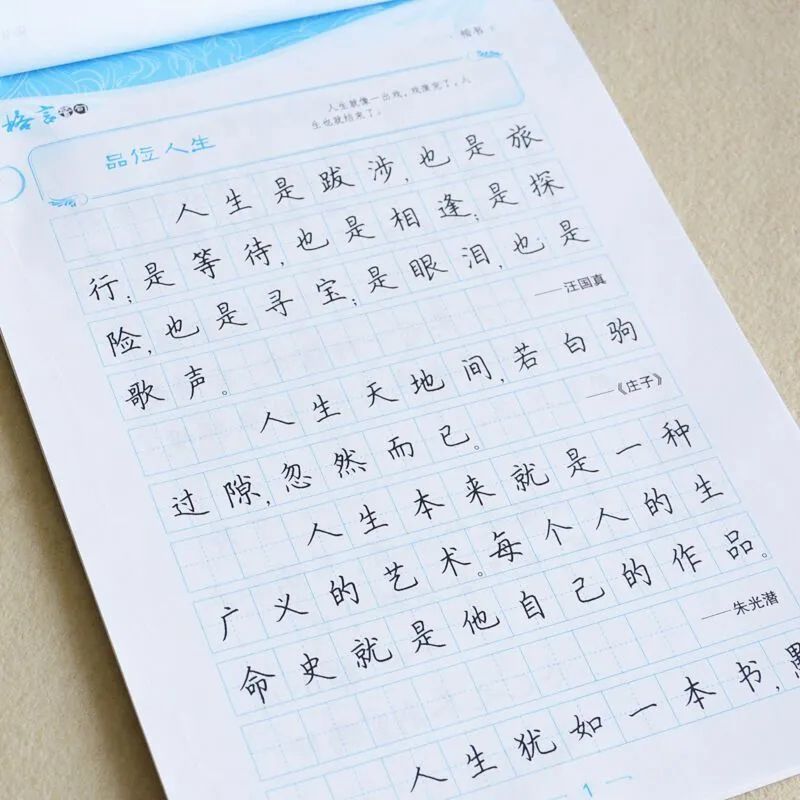 楷书
格言
人生就像一出戏，戏演完了，人
生也就结束了。
品位人生
人生是跋涉，也是旅
行；是等待，也是相逢；是探
险，也是寻宝；是眼泪，也是
歌声。
——汪国真
人生天地间，若白驹
过隙，忽然而已。
——《庄子》
人生本来就是一种
广义的艺术。每个人的生
命史就是他自己的作品。
——朱光潜
人生犹如一本书，愚
1